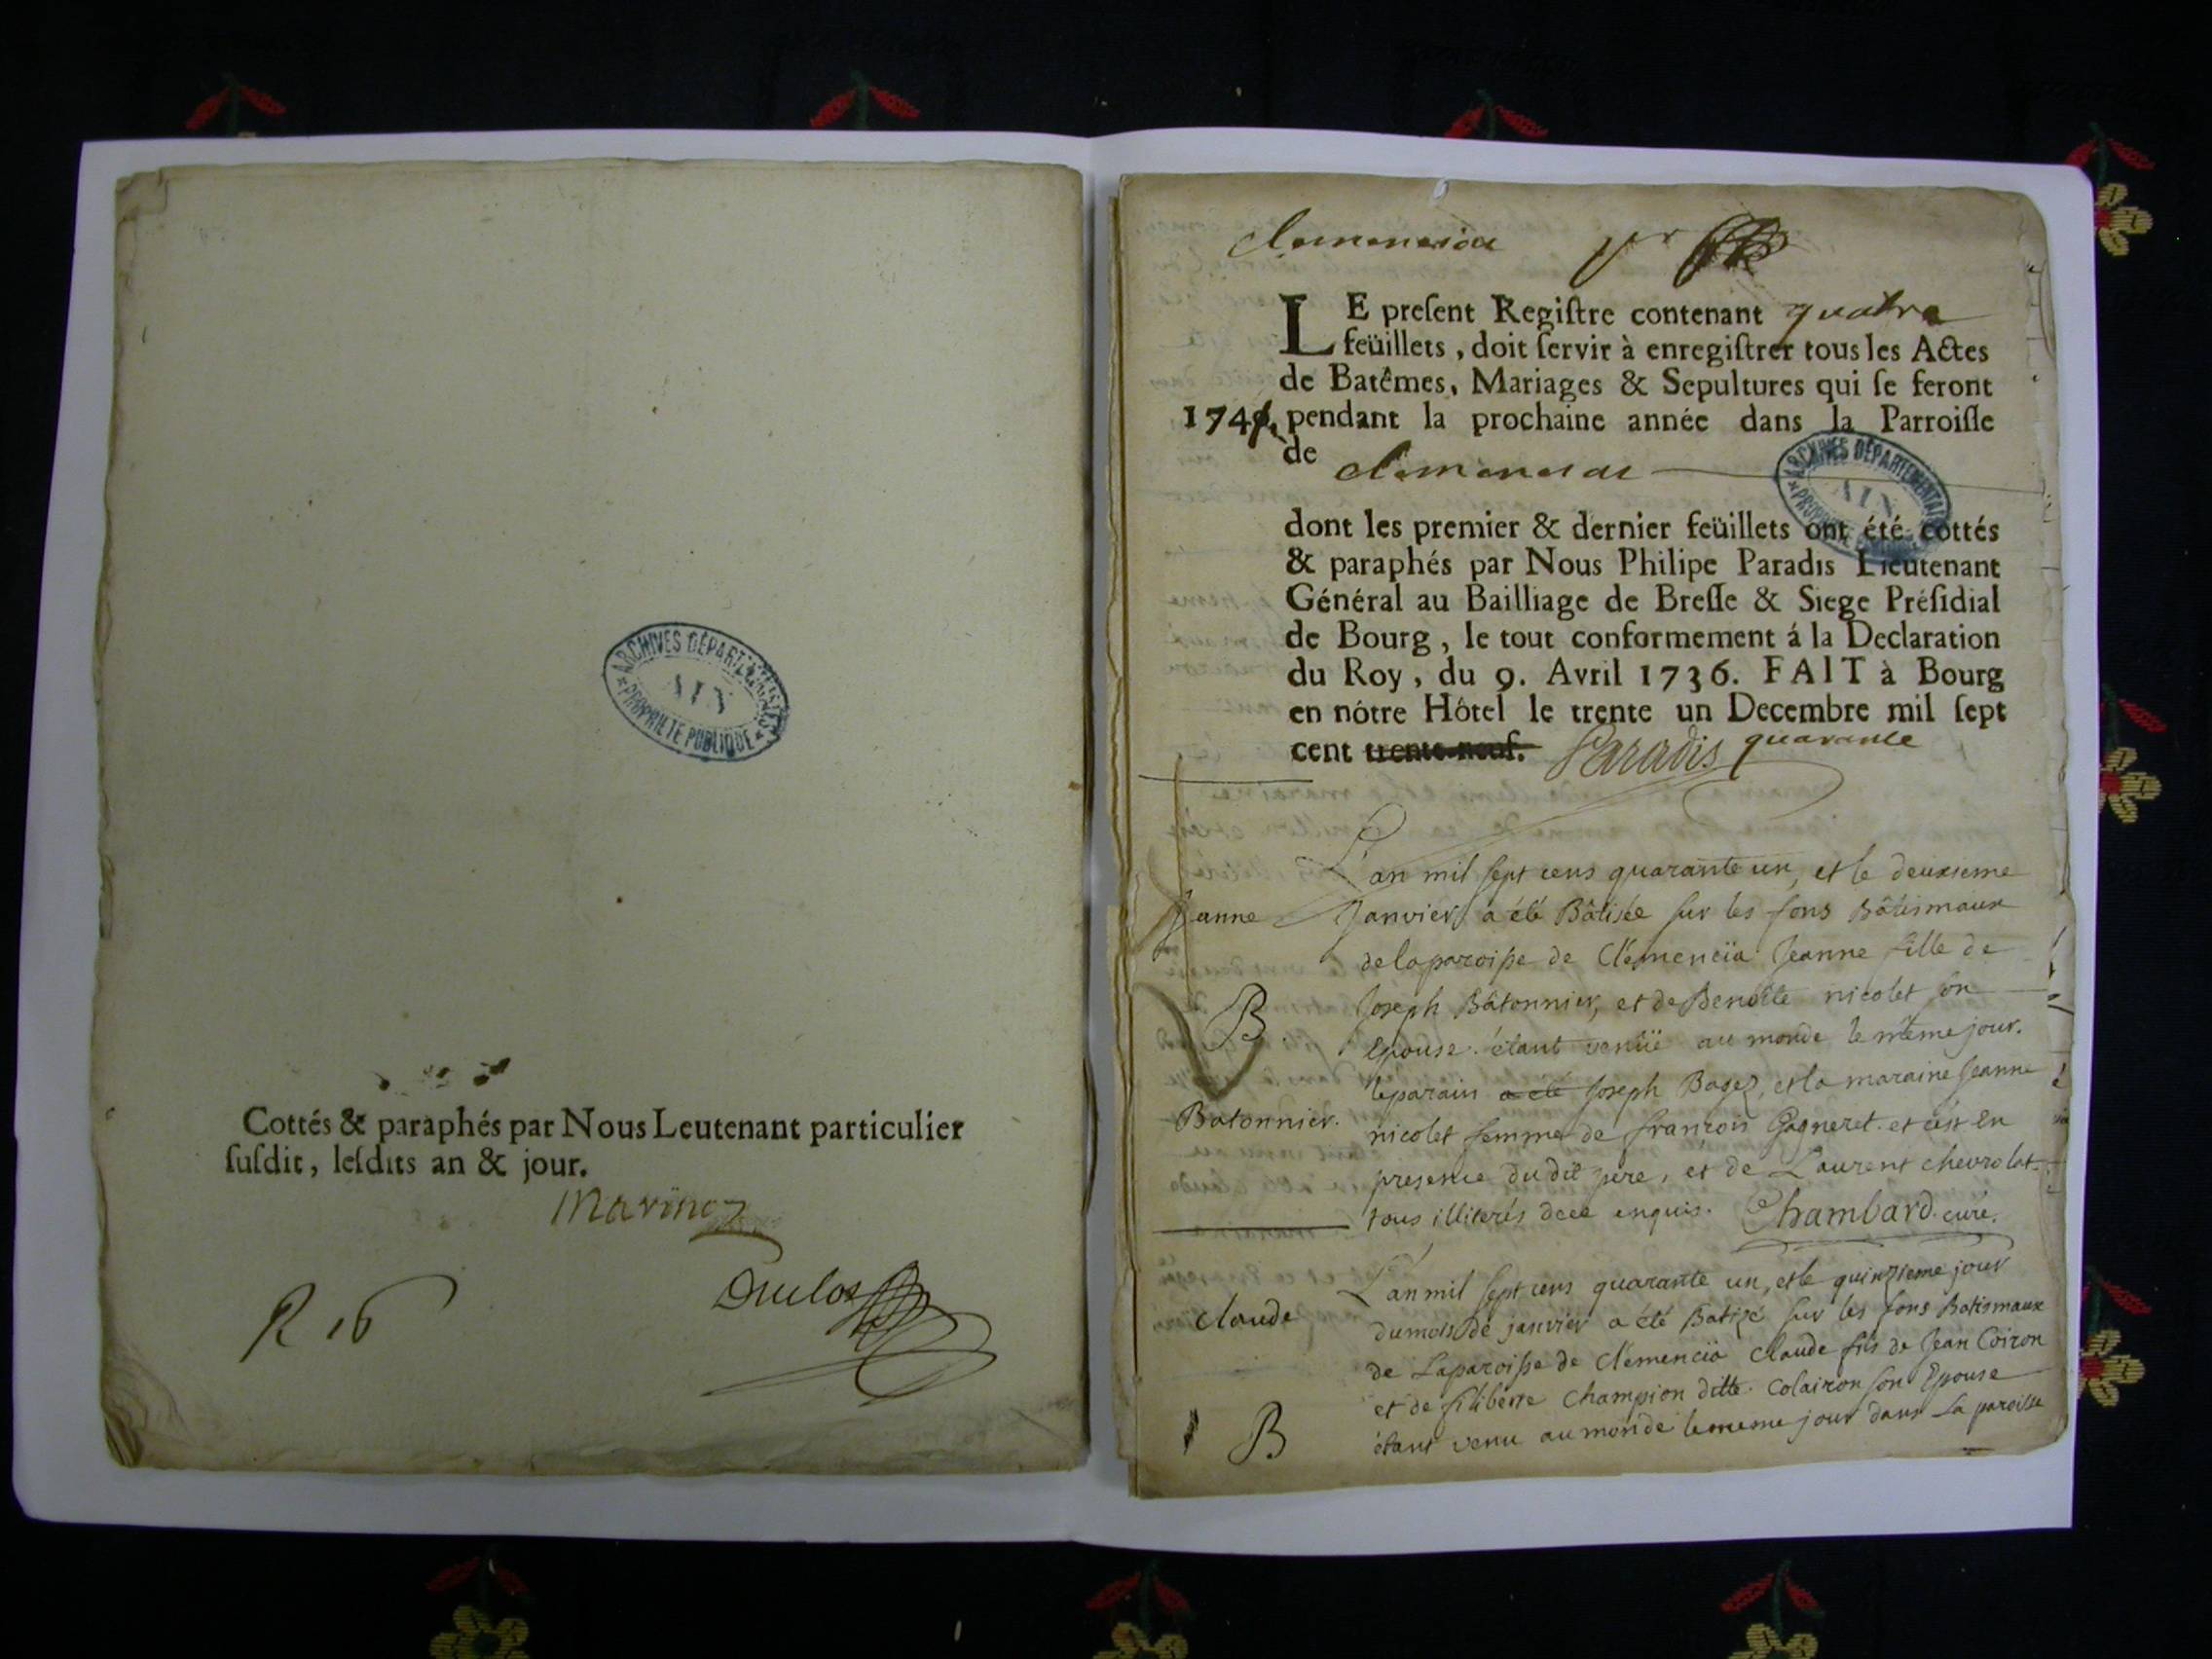 ARCHIVES DÉPARTEMENTALES
AIN
PROPRIÉTÉ PUBLIQUE
Cottés & paraphés par Nous Leutenant particulier
ſuſdit, leſdits an & jour.
R 16
Clemencia
LE preſent Regiſtre contenant quatre
feüillets, doit ſervir à enregiſtrer tous les Actes
de Batêmes, Mariages & Sepultures qui ſe feront
1741, pendant la prochaine année dans la Parroiſſe
de Clemencia
ARCHIVES DÉPARTEMENTALES
AIN
dont les premier & dernier feüillets ont été cottés
& paraphés par Nous Philipe Paradis Lieutenant
Général au Bailliage de Breſſe & Siege Préſidial
de Bourg, le tout conformement á la Declaration
du Roy, du 9. Avril 1736. FAIT à Bourg
en nótre Hôtel le trente un Decembre mil ſept
cent trente-neuf. Paradis quarante
L'an mil sept cens quarante un, et le deuxieme
Jeanne Janvier a été Bâtisée sur les fons Bâtismaux
de la paroisse de Clémencïa Jeanne fille de
Joseph Bâtonnier, et de Benoîte nicolet son
B
Epouse. étant venüe au monde le même jour.
le parain a été Joseph Bages, et la maraine Jeanne
Batonnier.
nicolet femme de françois Gagneret. et c'est en
presence du dit pere, et de Laurent chevrolat.
tous illiterés de ce enquis. Chambard. curé.
L'an mil sept cens quarante un, et le quinzieme jour
claude
du mois de janvier a été Batizé sur les fons Batismaux
de Laparoisse de Clémencïa Claude fils de Jean Coiron
et de filiberte Champion ditte Colairon son Epouse
B
étant venu au monde le meme jour dans La paroisse